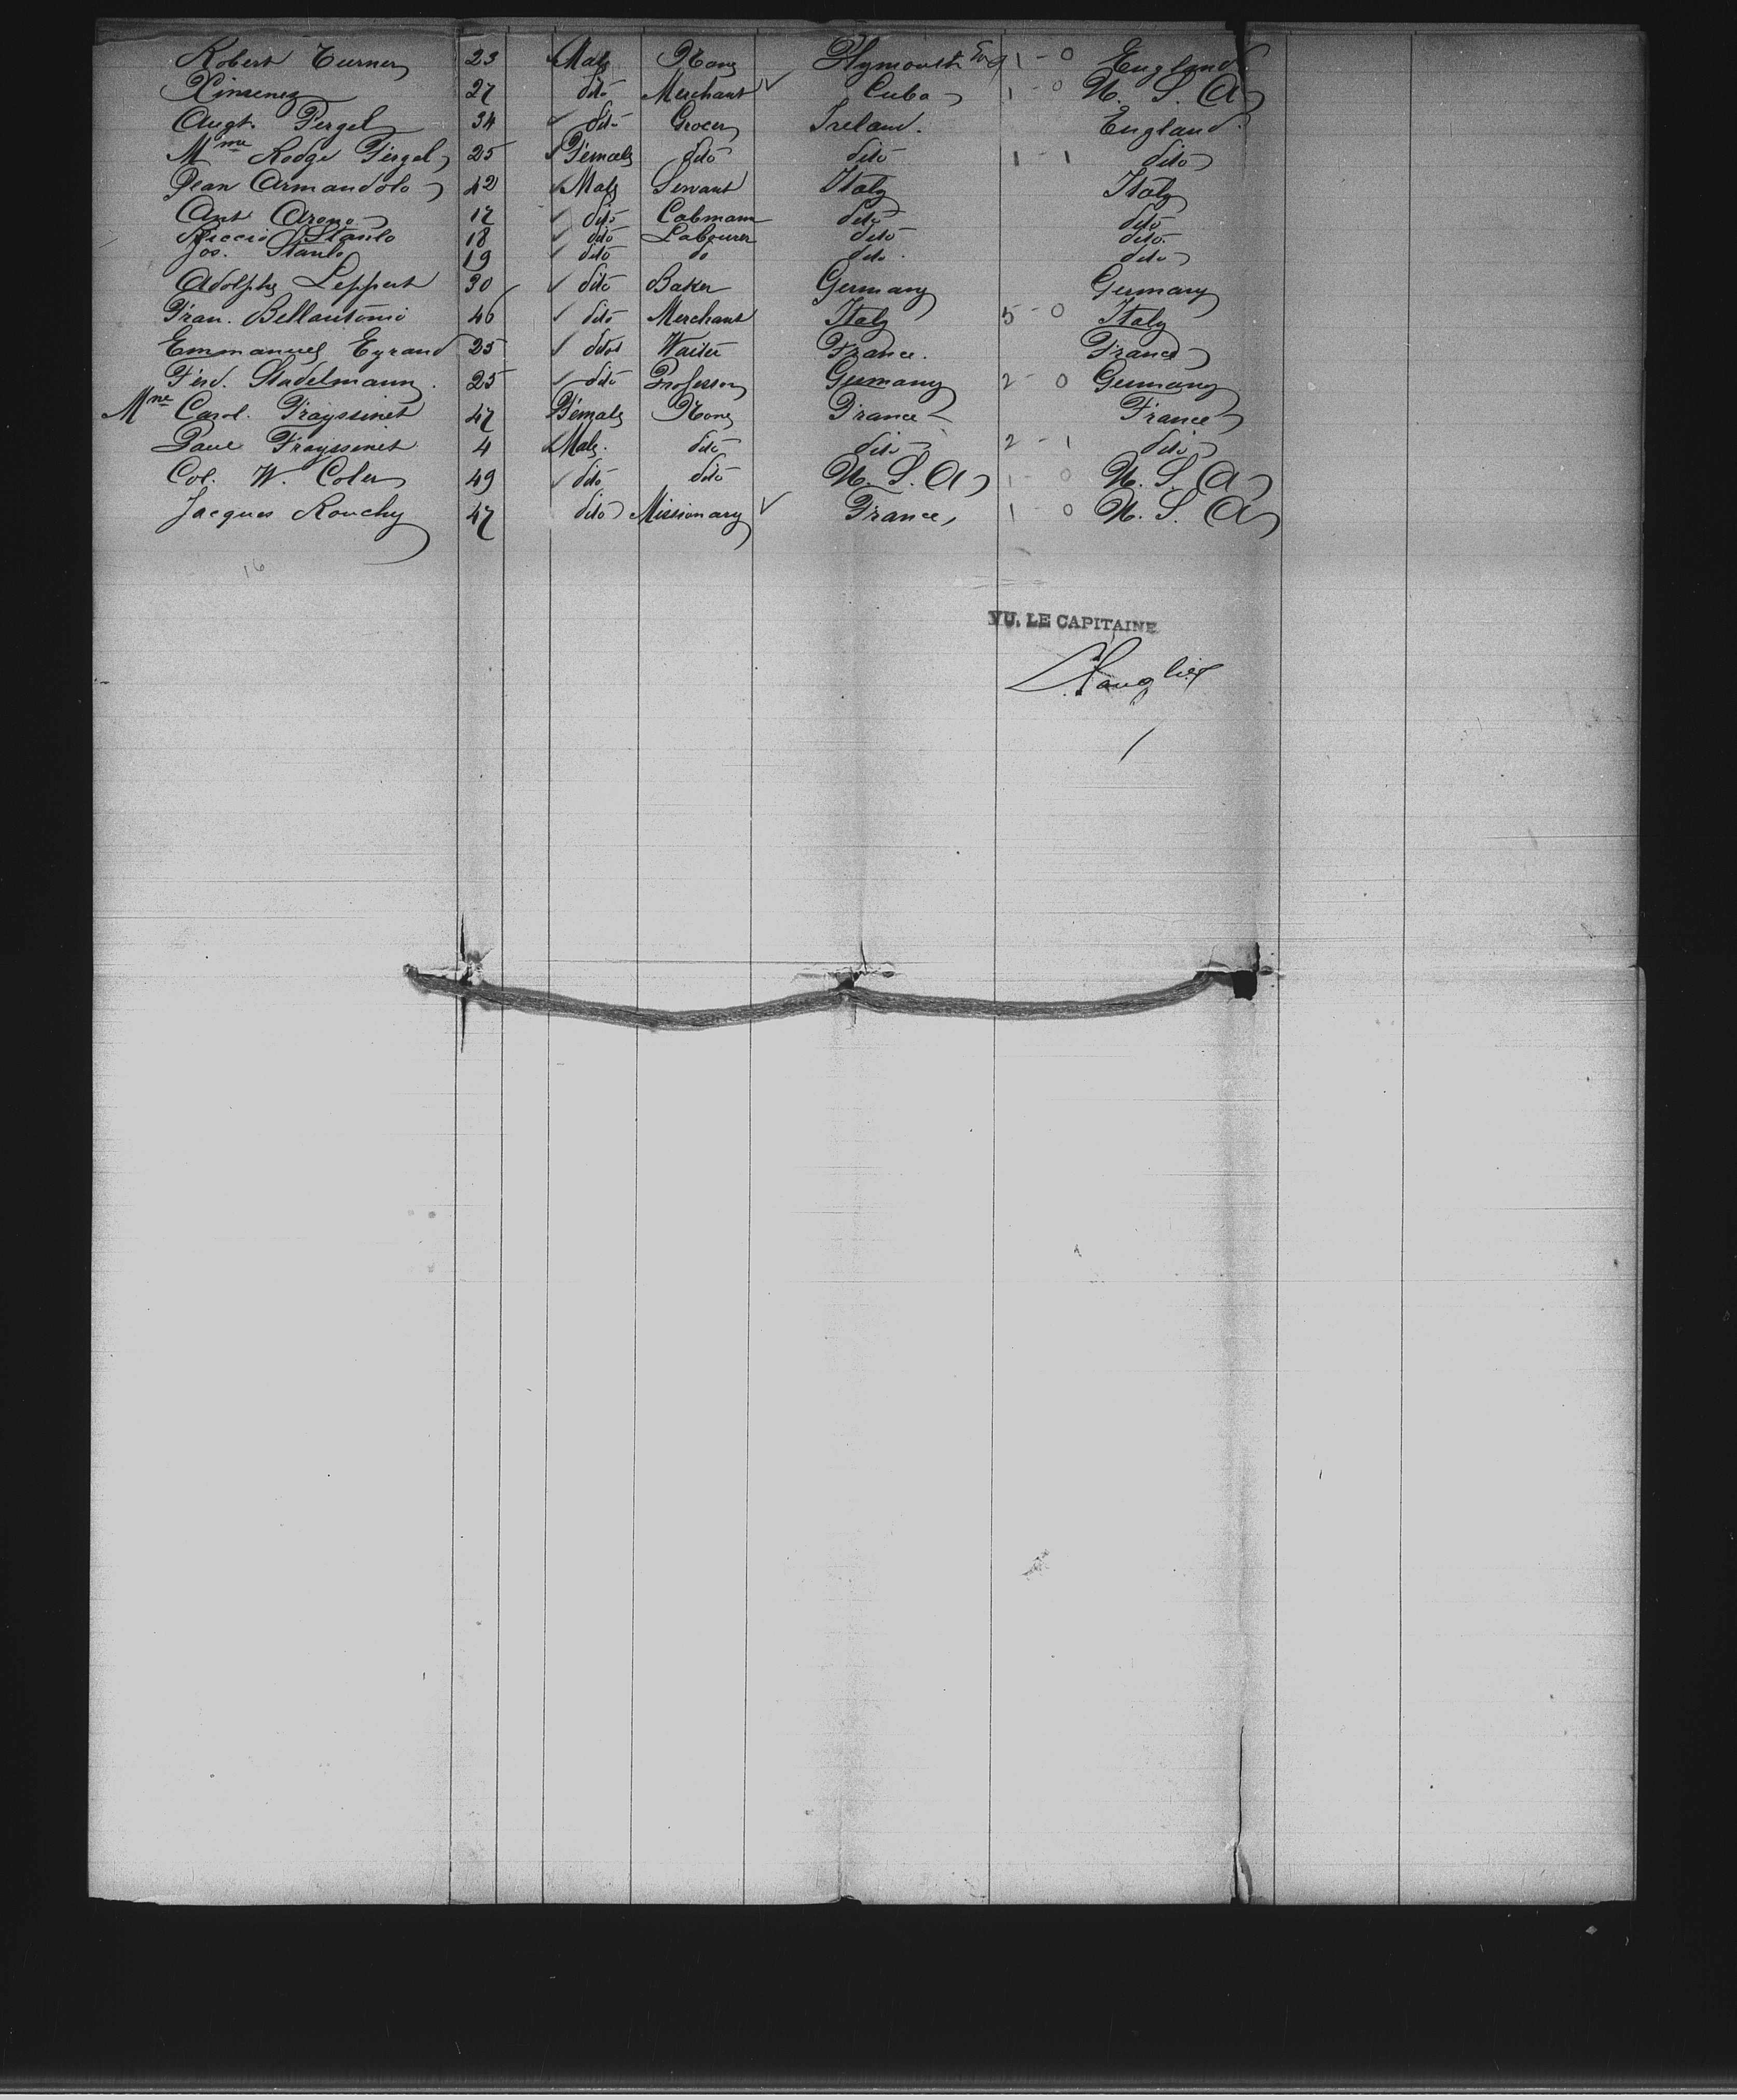 Robert Turner 23 Male None Plymouth Eng 1 - 0 England
Ximenez 27 dito Merchant Cuba 1 - 0 U. S. A
Augt. Fergel 34 dito Grocer Ireland. England.
Mme Rodge Fergel 25 Female dito dito 1 - 1 dito
Jean Armandolo 42 Male Servant Italy Italy
Ant Arono 17 dito Cabmann dito dito
Riccio Stanlo 18 dito Labourer dito dito.
Jos. Stanlo 19 dito do dito. dito
Adolphe Leppert 30 dito Baker Germany Germany
Fran. Bellantonio 46 dito Merchant Italy 5 - 0 Italy
Emmanuel Eyraud 25 dito Waiter France. France
Ferd. Stadelmann. 25 dito Professor Germany 2 - 0 Germany
Mme Carol. Frayssinet 47 Female None France France
Paul Frayssinet 4 Male. dito dito 2 - 1 dito
Col. W. Coler 49 dito dito U. S. A 1 - 0 U. S. A
Jacques Rouchy 47 dito Missionary France, 1 - 0 U. S. A
16
VU, LE CAPITAINE